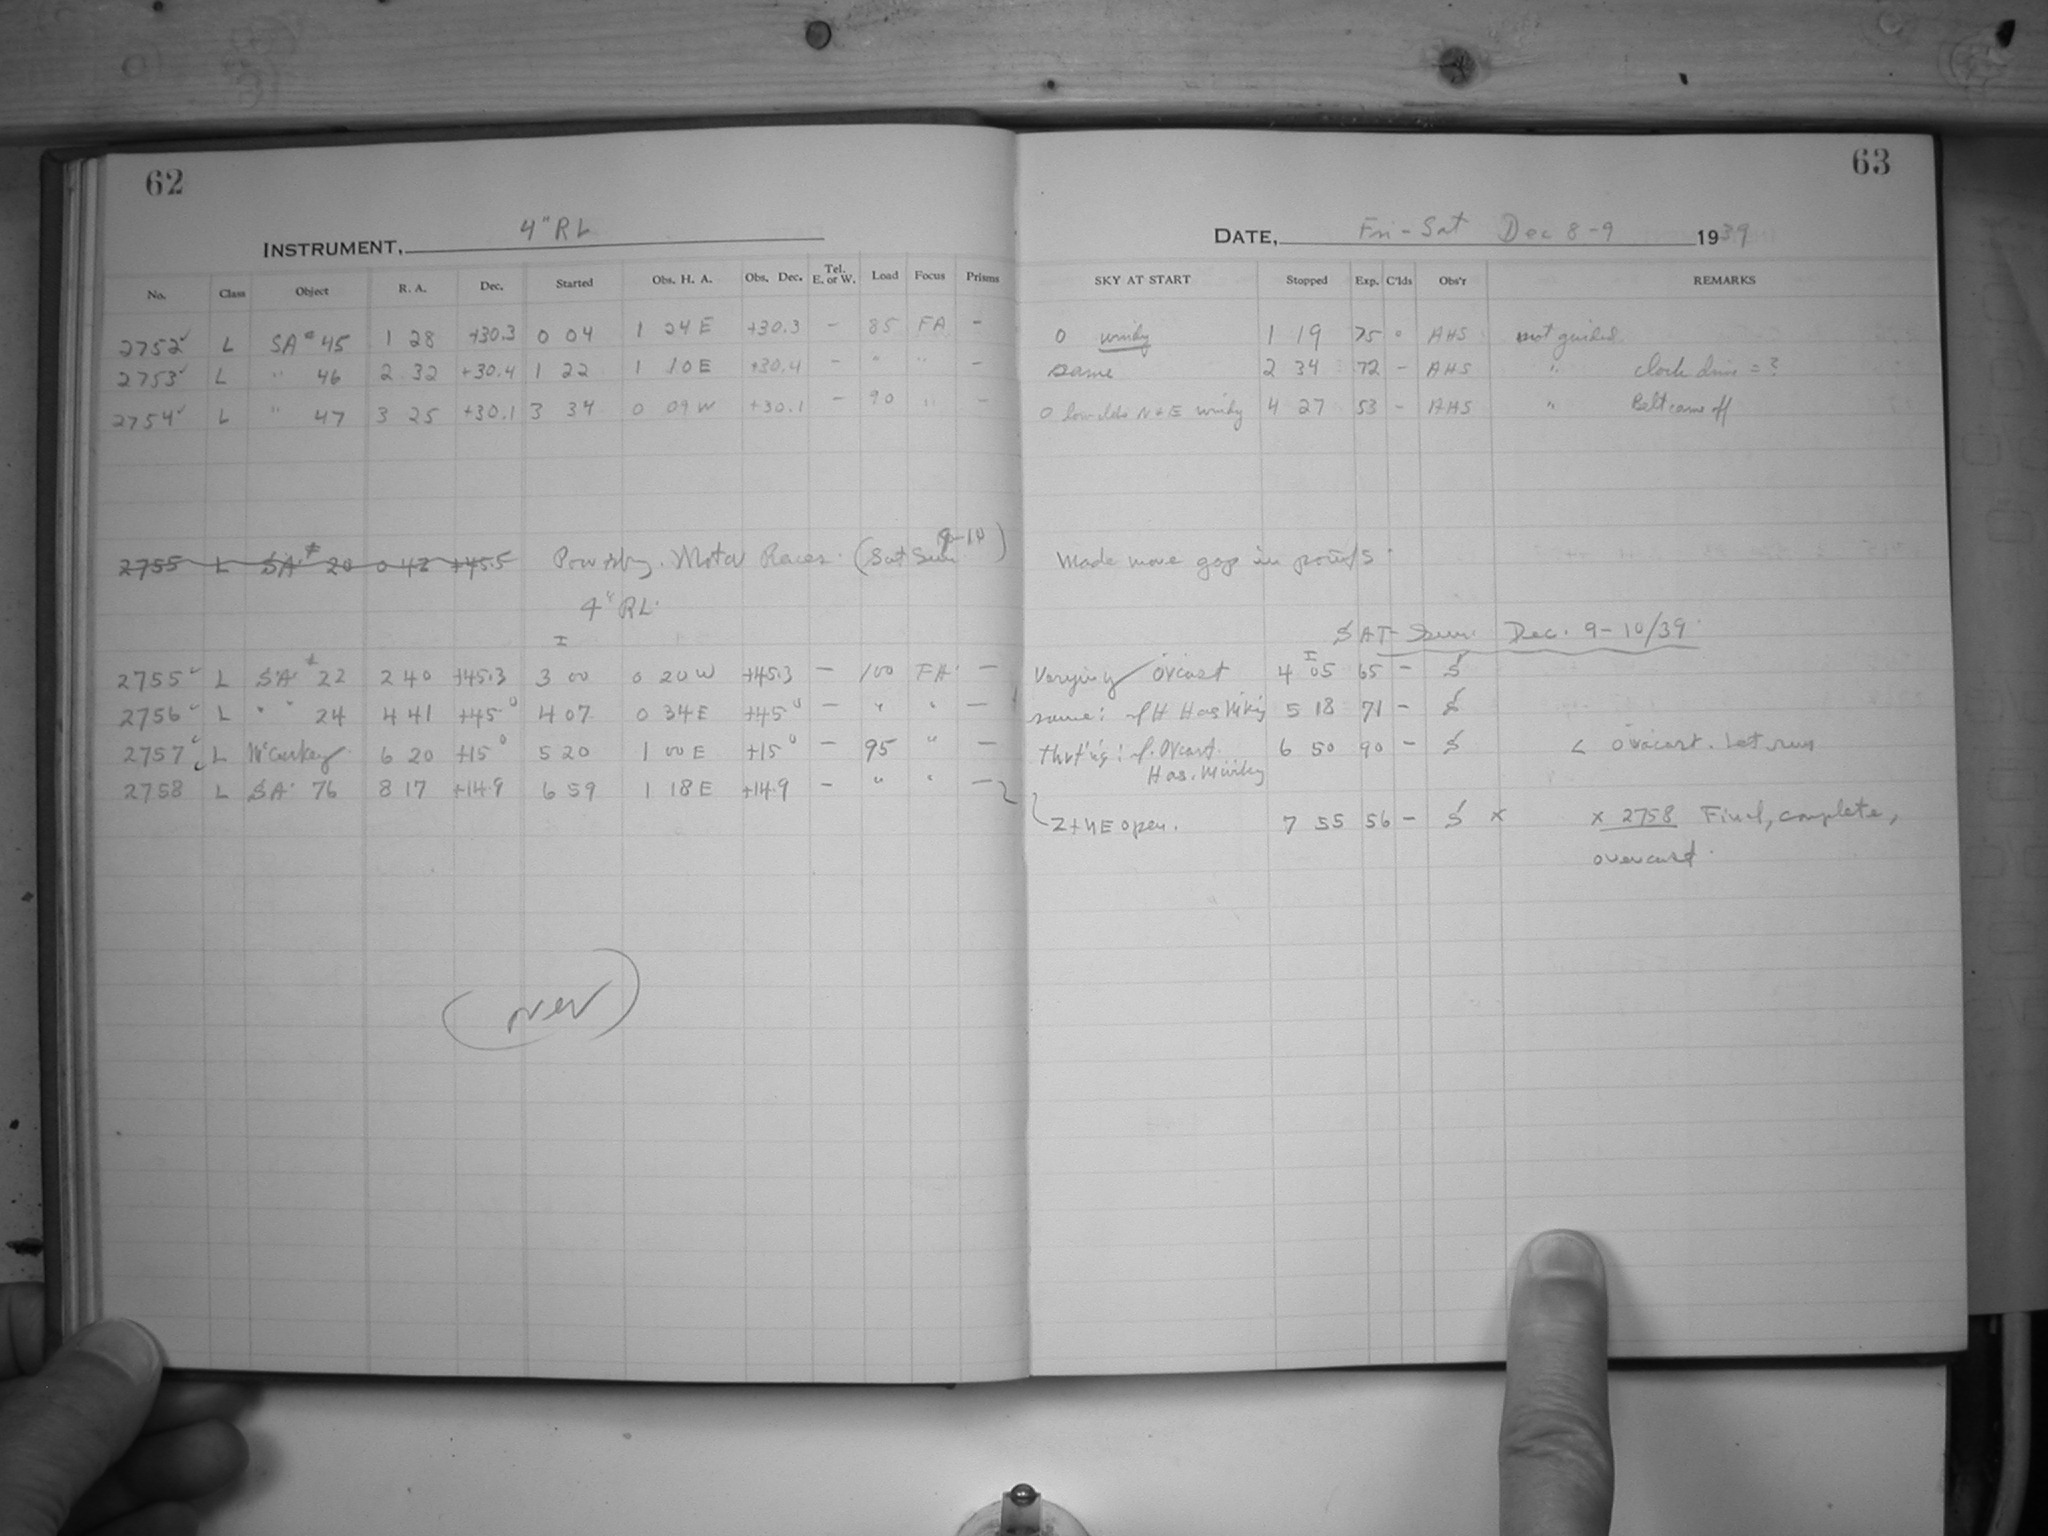 62
63
INSTRUMENT, 4" RL
DATE, Fri - Sat Dec 8-9 1939
No. Class Object R. A. Dec. Started Obs. H. A. Obs. Dec. Tel. E. or W. Load Focus Prisms SKY AT START Stopped Exp. C'lds Obs'r REMARKS
2752 L SA # 45 1 28 +30.3 0 04 1 24 E +30.3 - 85 FA - 0 windy 1 19 75 0 AHS not guided
2753 L " 46 2 32 +30.4 1 22 1 10 E +30.4 - " " - same 2 34 72 - AHS " clock drive = ?
2754 L " 47 3 25 +30.1 3 34 0 09 W +30.1 - 90 " - 0 low clds N + E windy 4 27 53 - AHS " Belt came off
2755 L SA # 20 0 42 +45.5 Motor Races. (Sat Sun 9-10) Made more gap in points.
4" RL.
SAT - Sun. Dec. 9-10/39
2755 L SA # 22 2 40 +45.3 3 00 0 20 W +45.3 - 100 FA - Varying ovcast 4 05 65 - S
2756 L " " 24 4 41 +45° 4 07 0 34 E +45° - " " - same: 5 18 71 - S
2757 L McCuskey 6 20 +15° 5 20 1 00 E +15° - 95 " - 6 50 90 - S < ovacast. Let run
2758 L SA 76 8 17 +14.9 6 59 1 18 E +14.9 - " " -
Z + NE open. 7 55 56 - S x x 2758 Final, complete,
overcast.
(over)